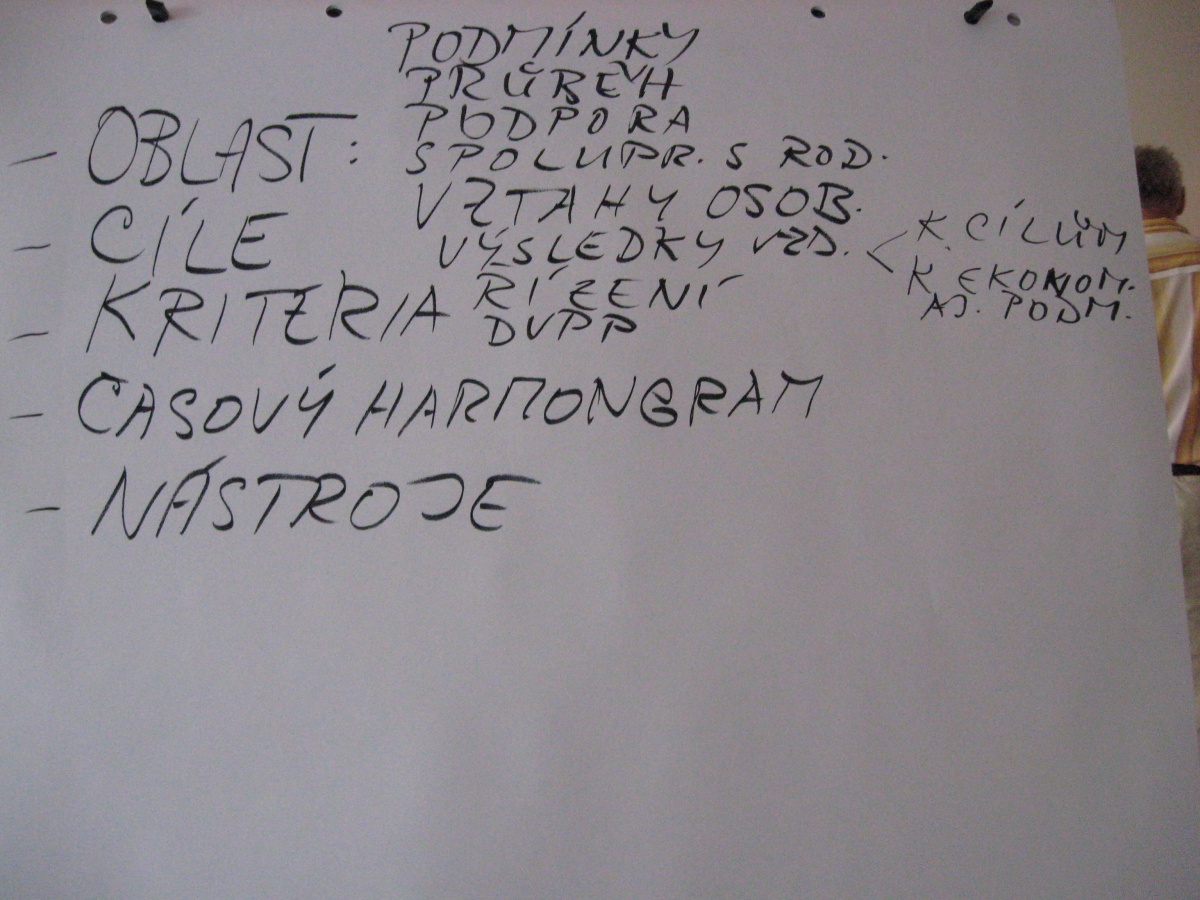 PODMÍNKY
PRŮBĚH
PODPORA
- OBLAST: SPOLUPR. S ROD.
VZTAHY OSOB.
- CÍLE
VÝSLEDKY VZD. < K CÍLŮM
K EKONOM.
AJ. PODM.
- KRITERIA
ŘÍZENÍ
DVPP
- CASOVÝ HARMONGRAM
- NÁSTROJE